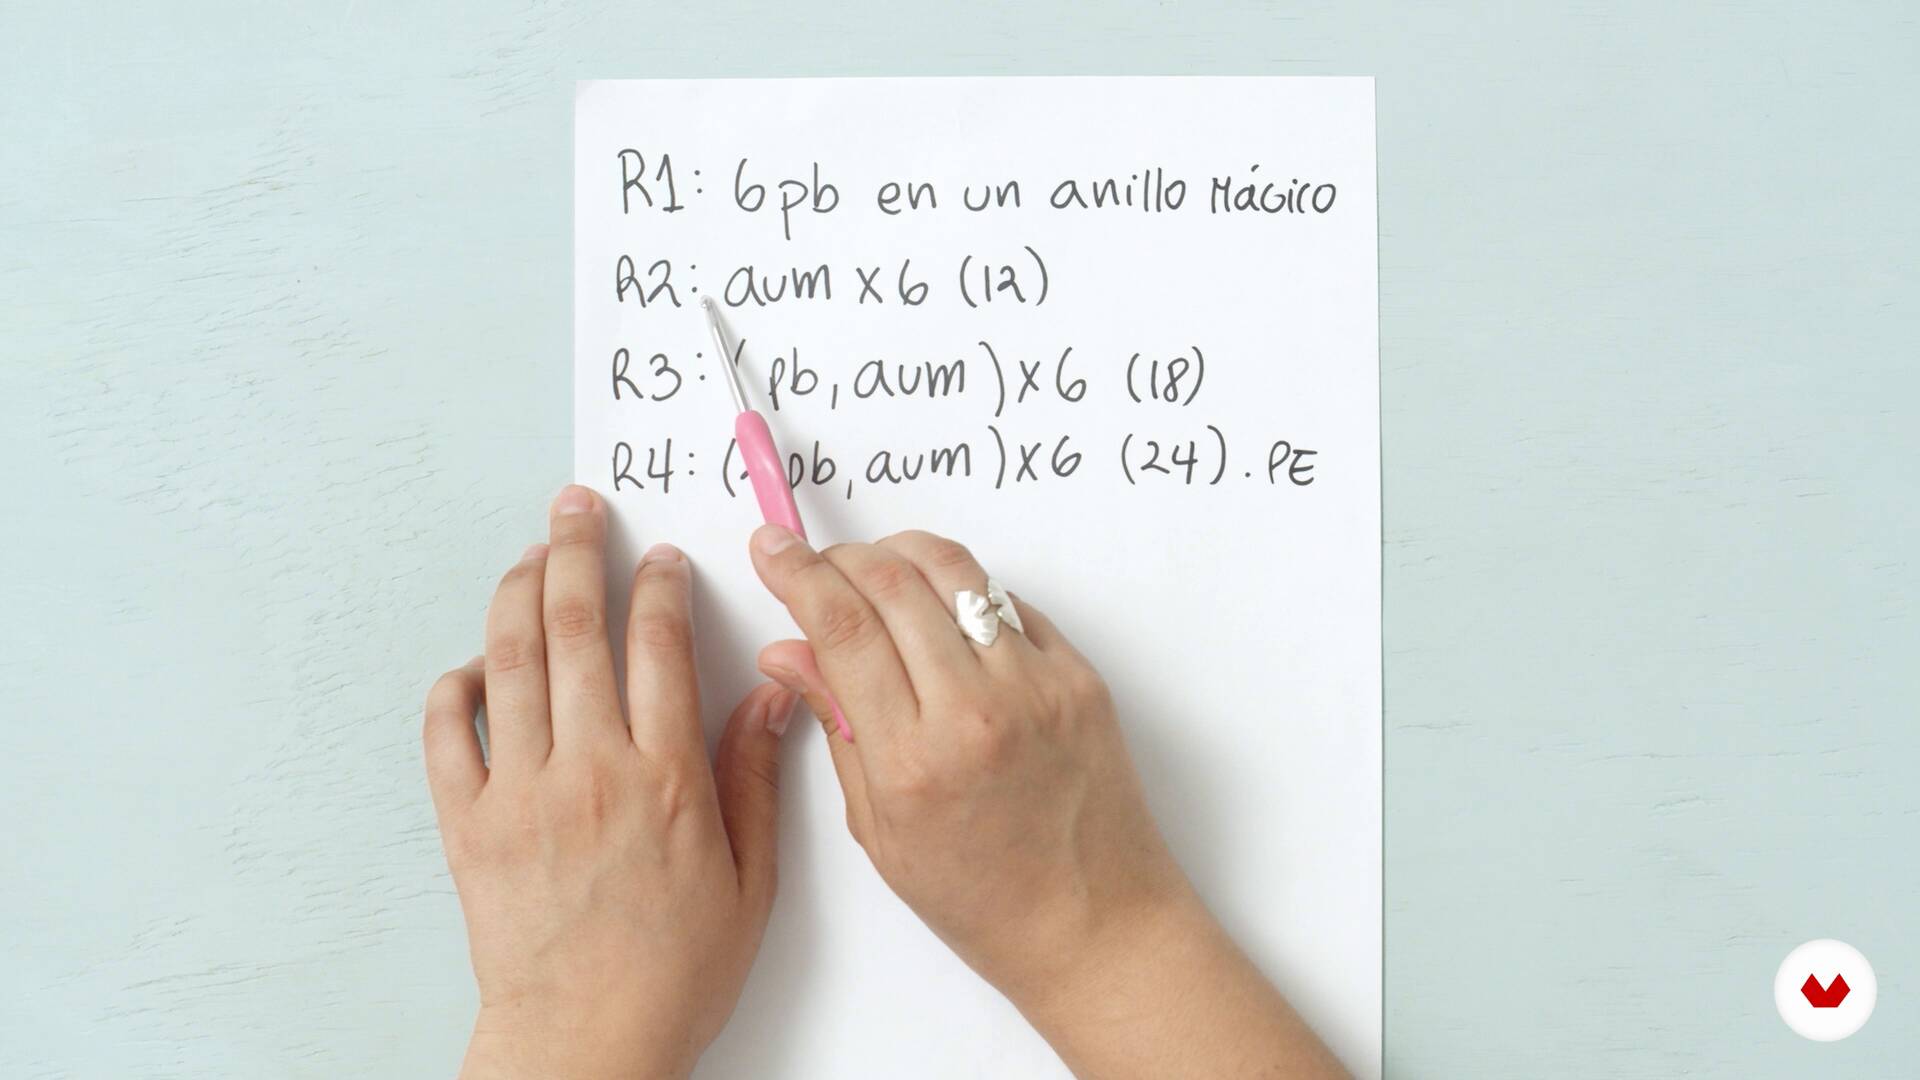 R1: 6pb en un anillo mágico
R2: aum x 6 (12)
R3: ( pb, aum ) x 6 (18)
R4: ( pb, aum ) x 6 (24). PE